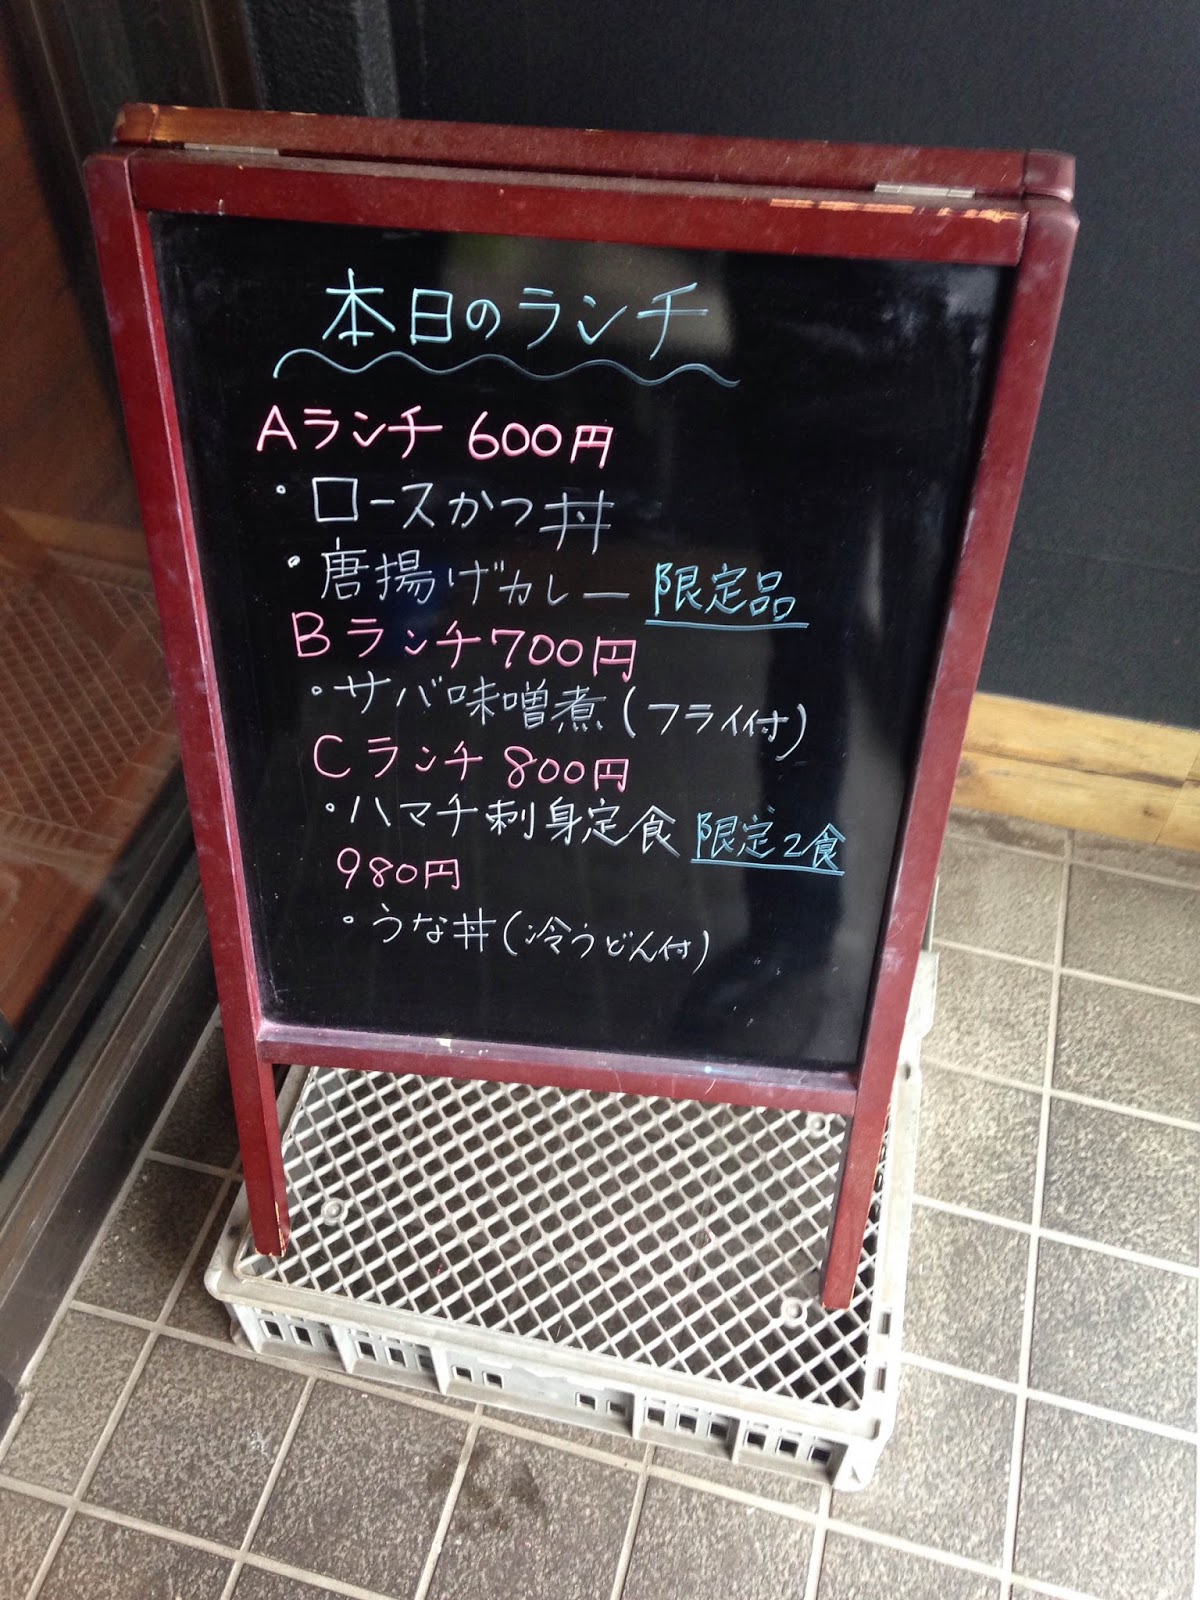 本日のランチ
Aランチ 600円
・ロースかつ丼
・唐揚げカレー 限定品
Bランチ700円
・サバ味噌煮(フライ付)
Cランチ 800円
・ハマチ刺身定食 限定2食
980円
・うな丼(冷うどん付)